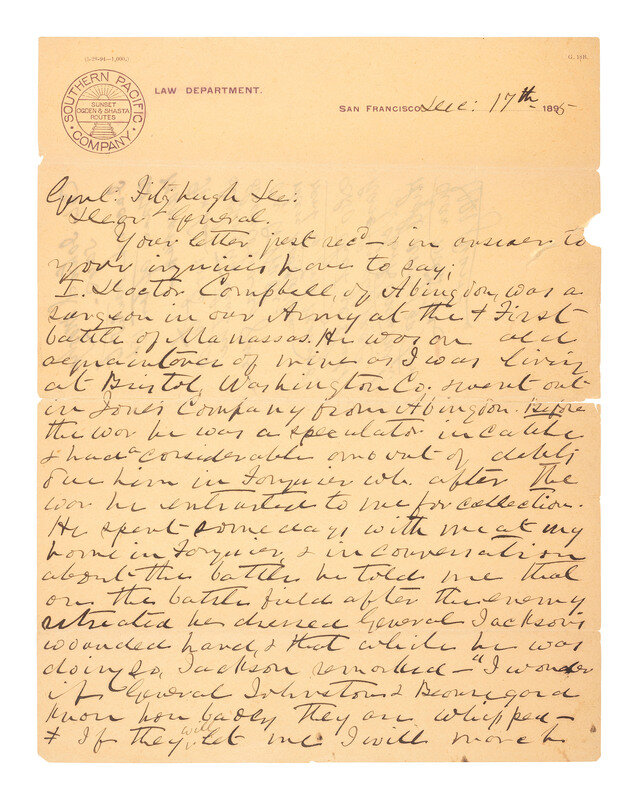 (1-29-94—1,000.)
G. 188.
SOUTHERN PACIFIC COMPANY
SUNSET
OGDEN & SHASTA
ROUTES
LAW DEPARTMENT.
SAN FRANCISCO, Dec: 17th 1895
Genl: Fitzhugh Lee:
Dear General.
Your letter just recd — & in answer to
your inquiries have to say;
I. Doctor Campbell, of Abingdon, was a
surgeon in our Army at the First
battle of Manassas. He was an old
acquaintance of mine as I was living
at Bristol, Washington Co. & went out
in Jones Company from Abingdon. Before
the war he was a speculator in cattle
& had a considerable amount of debts
due him in Fauquier wh. after the
war he entrusted to me for collection.
He spent some days with me at my
home in Fauquier, & in conversation
about the battle he told me that
on the battle field after the enemy
retreated he dressed General Jackson's
wounded hand, & that while he was
doing so, Jackson remarked — "I wonder
if General Johnston & Beauregard
know how badly they are whipped —
If they will let me I will march